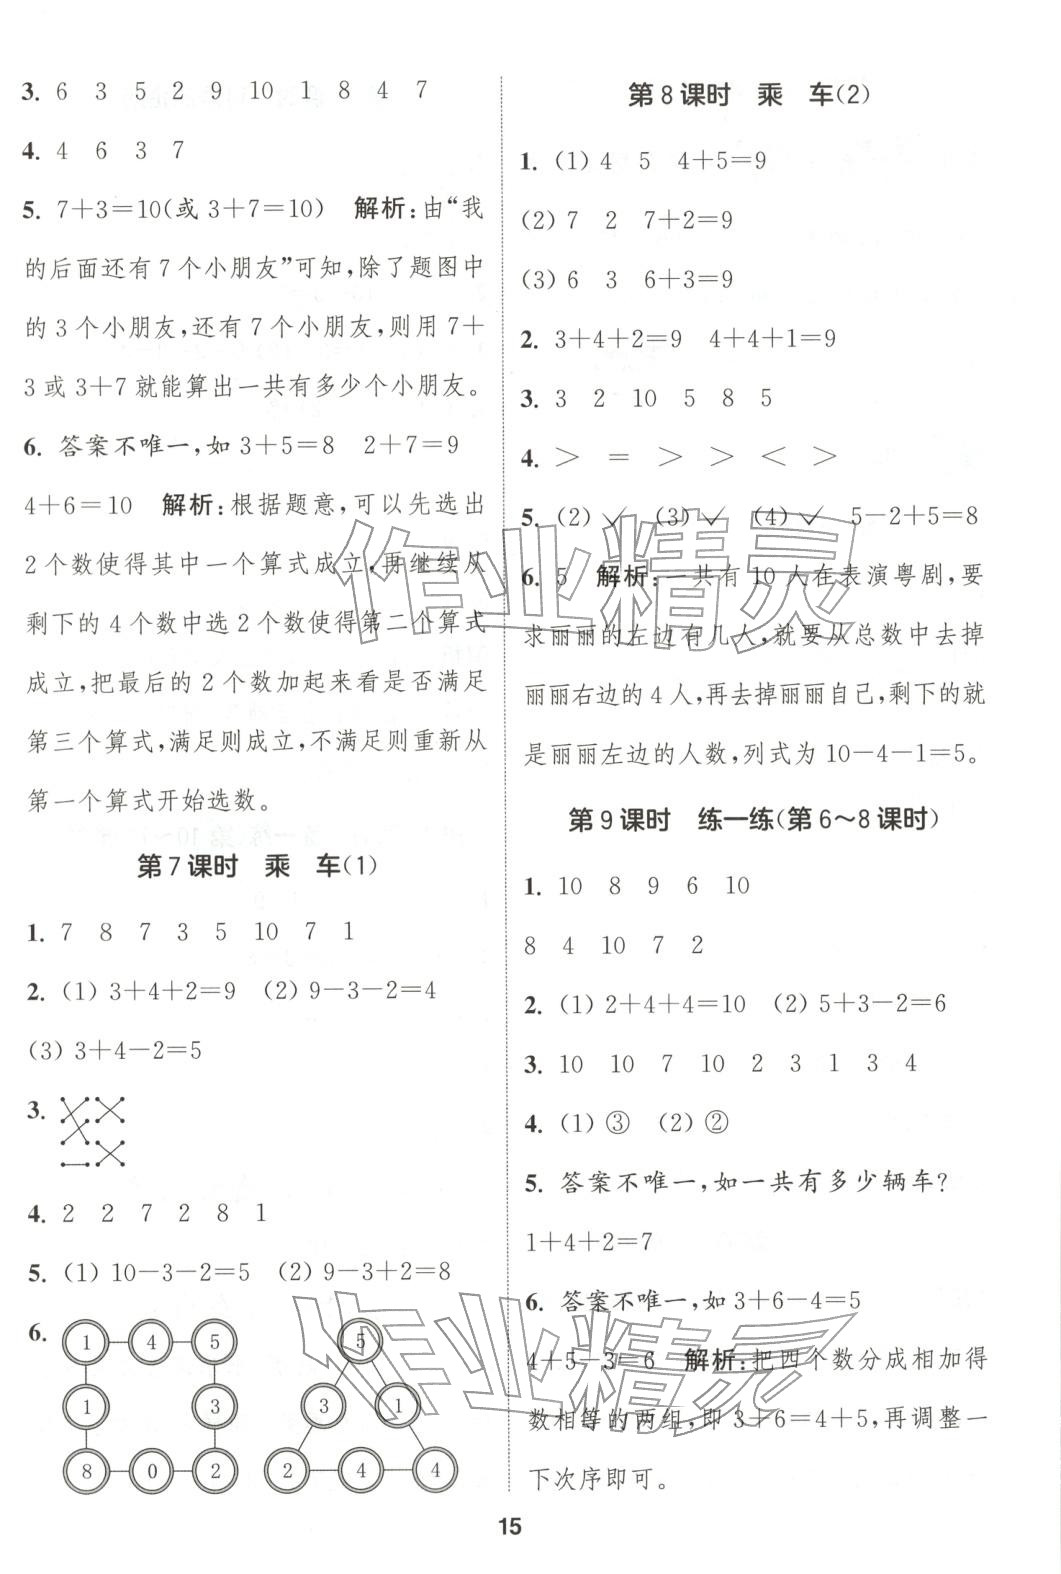 3. 6 3 5 2 9 10 1 8 4 7
4. 4 6 3 7
5. 7+3=10(或 3+7=10) 解析:由“我
的后面还有 7 个小朋友”可知,除了题图中
的 3 个小朋友,还有 7 个小朋友,则用 7+
3 或 3+7 就能算出一共有多少个小朋友。
6. 答案不唯一,如 3+5=8 2+7=9
4+6=10 解析:根据题意,可以先选出
2 个数使得其中一个算式成立,再继续从
剩下的 4 个数中选 2 个数使得第二个算式
成立,把最后的 2 个数加起来看是否满足
第三个算式,满足则成立,不满足则重新从
第一个算式开始选数。
第 7 课时 乘 车(1)
1. 7 8 7 3 5 10 7 1
2. (1) 3+4+2=9 (2) 9-3-2=4
(3) 3+4-2=5
3.
4. 2 2 7 2 8 1
5. (1) 10-3-2=5 (2) 9-3+2=8
6.
1 4 5
1 3
8 0 2
5
3 1
2 4 4
第 8 课时 乘 车(2)
1. (1) 4 5 4+5=9
(2) 7 2 7+2=9
(3) 6 3 6+3=9
2. 3+4+2=9 4+4+1=9
3. 3 2 10 5 8 5
4. > = > > < >
5. (2) ✓ (3) ✓ (4) ✓ 5-2+5=8
6. 5 解析:一共有 10 人在表演粤剧,要
求丽丽的左边有几人,就要从总数中去掉
丽丽右边的 4 人,再去掉丽丽自己,剩下的就
是丽丽左边的人数,列式为 10-4-1=5。
第 9 课时 练一练(第 6~8 课时)
1. 10 8 9 6 10
8 4 10 7 2
2. (1) 2+4+4=10 (2) 5+3-2=6
3. 10 10 7 10 2 3 1 3 4
4. (1) ③ (2) ②
5. 答案不唯一,如一共有多少辆车?
1+4+2=7
6. 答案不唯一,如 3+6-4=5
4+5-3=6 解析:把四个数分成相加得
数相等的两组,即 3+6=4+5,再调整一
下次序即可。
15
作业精灵
作业精灵